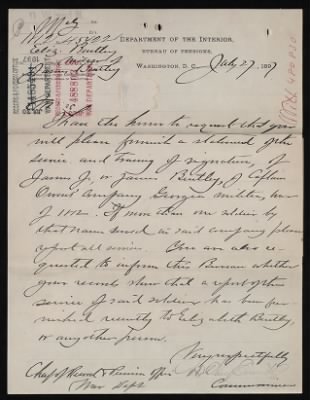 Eliz. Bentley
widow of
DEPARTMENT OF THE INTERIOR,
BUREAU OF PENSIONS,
WASHINGTON, D. C., July 27, 1897
I have the honor to request that you
will please furnish a statement of the
service and tracing of signature, of
James J. or James Bentley, of Captain
Owens' Company, Georgia militia, war
of 1812. If more than one soldier by
that name served in said company please
report all service. You are also re-
quested to inform this Bureau whether
your records show that a report of the
service of said soldier has been fur-
nished recently to Elizabeth Bentley,
or any other person.
Very respectfully
Commissioner
Chief of Record & Pension Office
War Dept.